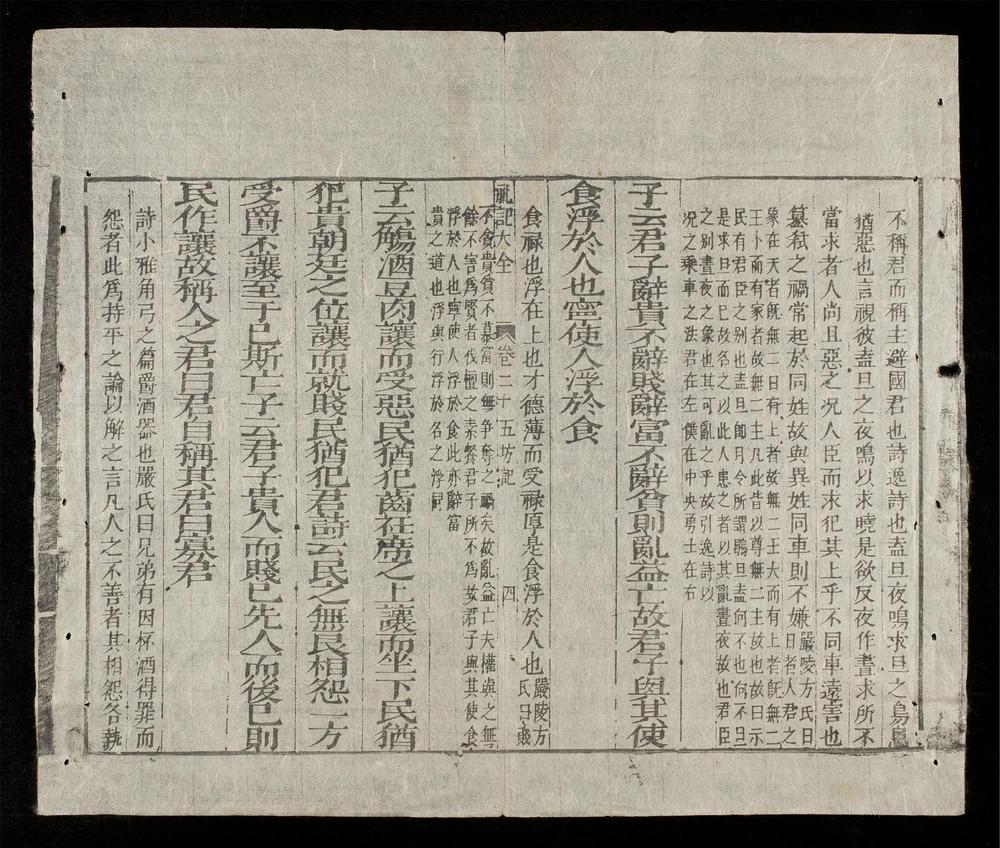 不稱君而稱主避國君也詩逸詩也盍旦夜鳴求旦之鳥患
猶惡也言視彼盍旦之夜鳴以求曉是欲反夜作晝求所不
當求者人尚且惡之况人臣而求犯其上乎不同車遠害也
簒弑之禍常起於同姓故與異姓同車則不嫌
嚴陵方氏曰
日者人君之
象在天者旣無二日有上者故無二王大而有上者旣無二
王小而有家者故無二主凡此皆以尊無二主故也故曰示
民有君臣之别也盍旦卽月令所謂鶡旦盍何不也何不旦
是求旦而已故名之以此人患之者以其亂晝夜故也君臣
之别晝夜之象也其可亂之乎故引逸詩以
况之乘車之法君在左僕在中央勇士在右
子云君子辭貴不辭賤辭富不辭貧則亂益亡故君子與其使
食浮於人也寧使人浮於食
食祿也浮在上也才德薄而受祿厚是食浮於人也
嚴陵方
氏曰賤
禮記大全 卷二十五坊記 四
不貪貴貧不慕富則無争奪之禍矣故亂益亡夫權與之無
餘不害爲賢者伐檀之素餐君子所不爲故君子與其使食
浮於人也寧使人浮於食此亦辭富
貴之道也浮與行浮於名之浮同
子云觴酒豆肉讓而受惡民猶犯齒衽席之上讓而坐下民猶
犯貴朝廷之位讓而就賤民猶犯君詩云民之無良相怨一方
受爵不讓至于已斯亡子云君子貴人而賤已先人而後已則
民作讓故稱人之君曰君自稱其君曰寡君
詩小雅角弓之篇爵酒器也嚴氏曰兄弟有因杯酒得罪而
怨者此爲持平之論以解之言凡人之不善者其相怨各執